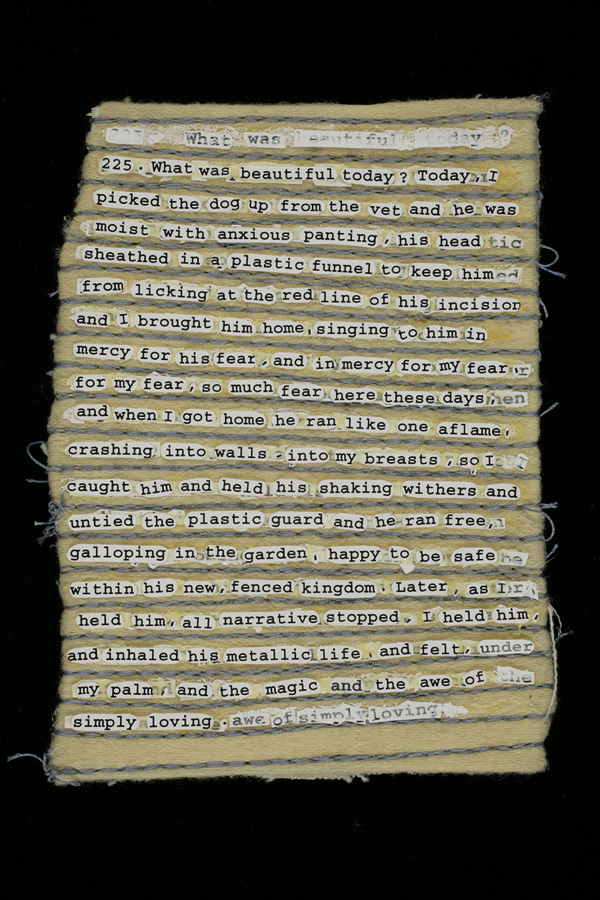 What was beautiful today ?
225. What was beautiful today? Today, I
picked the dog up from the vet and he was
moist with anxious panting, his head tic
sheathed in a plastic funnel to keep him ed
from licking at the red line of his incision
and I brought him home, singing to him in
mercy for his fear, and in mercy for my fear, r
for my fear, so much fear here these days, hen
and when I got home he ran like one aflame,
crashing into walls - into my breasts, so I
caught him and held his shaking withers and
untied the plastic guard and he ran free,
galloping in the garden, happy to be safe he
within his new, fenced kingdom. Later, as I
held him, all narrative stopped. I held him,
and inhaled his metallic life and felt, under
my palm, and the magic and the awe of the
simply loving. awe of simply loving